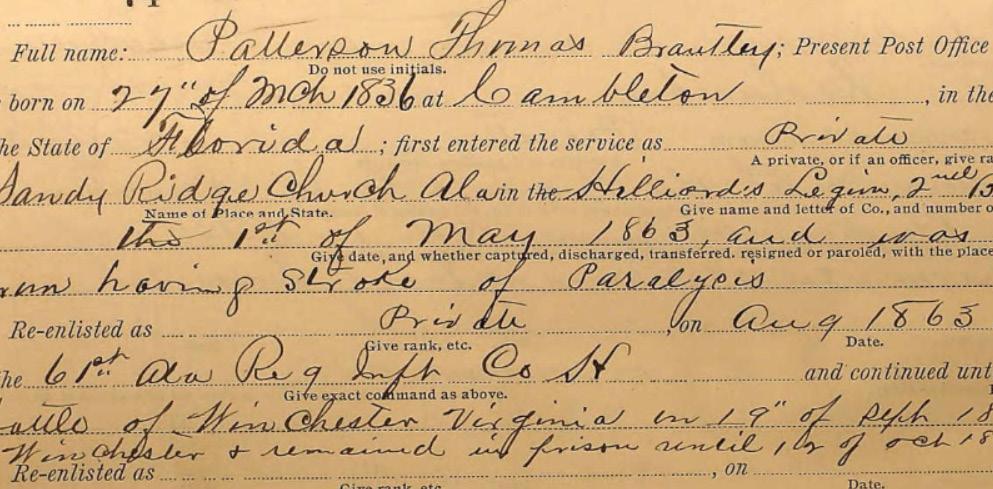 Full name: Patterson Thomas Brantley; Present Post Office
Do not use initials.
born on 27" of Mch 1836 at Cambleton , in the
he State of Florida ; first entered the service as Private
A private, or if an officer, give ra
Sandy Ridge Church Ala in the Hilliard's Legion, 2nd B
Name of Place and State.
Give name and letter of Co., and number o
the 1st of May 1863, and was
Give date, and whether captured, discharged, transferred. resigned or paroled, with the place
having Stroke of Paralysis
Re-enlisted as Private , on Aug 1863
Give rank, etc.
Date.
he 61st Ala Reg Inft Co H and continued unt
Give exact command as above.
attle of Winchester Virginia on 19" of Sept 18
Winchester & remained in prison until of Oct 18
Re-enlisted as , on
Give rank, etc.
Date.